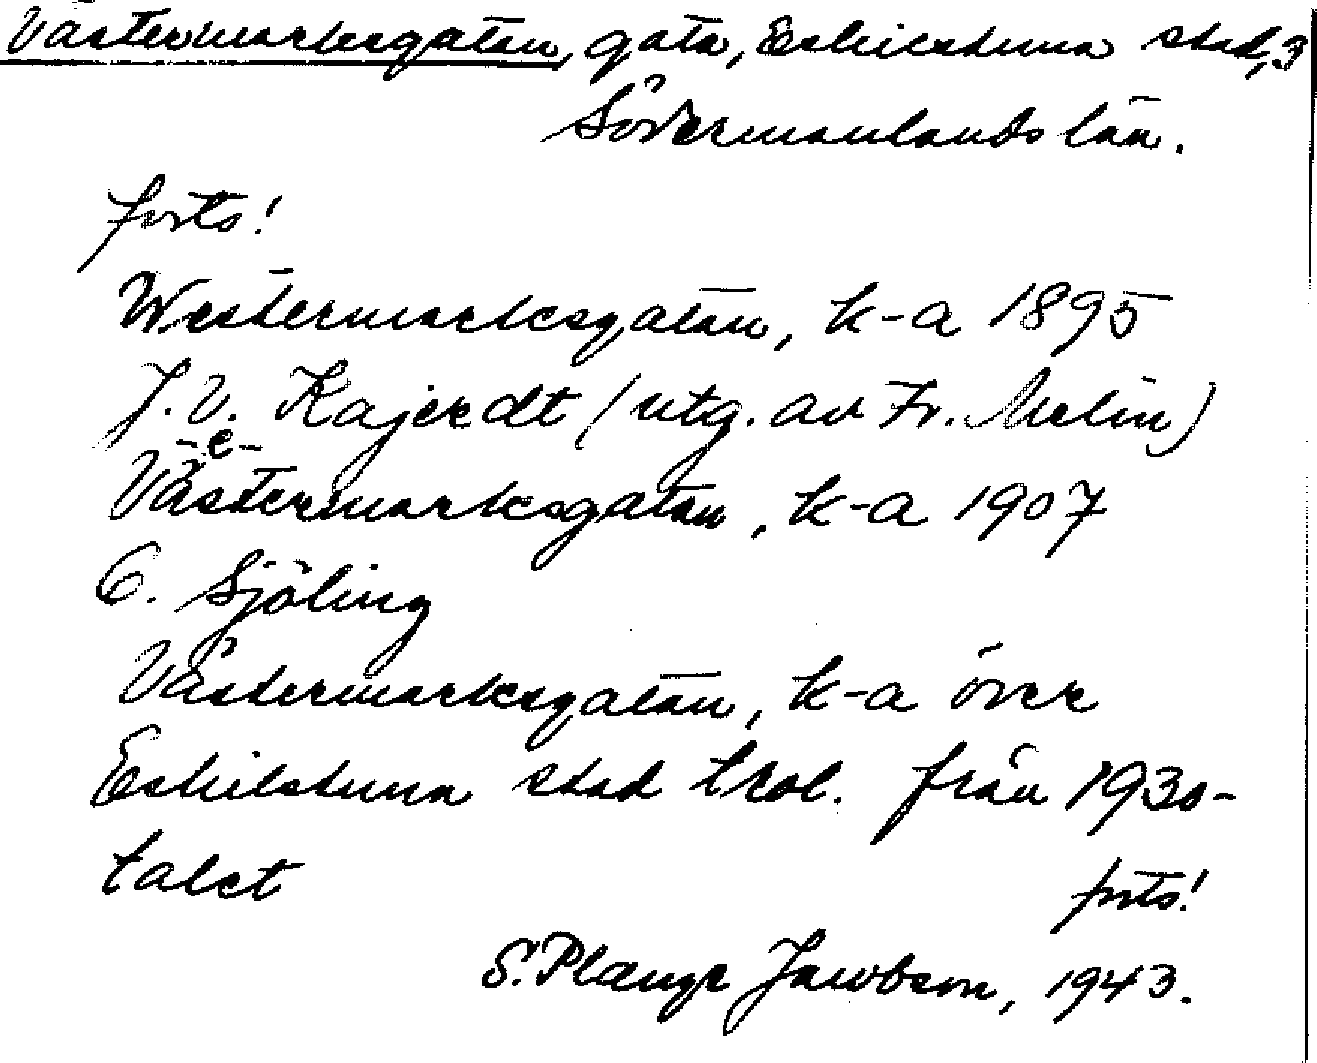 Västermarksgatan, gata, Eskilstuna stad, 3
Södermanlands län.
forts!
Westermarksgatan, k-a 1895
J. V. Kajerdt (utg. av Fr. Melin)
-e-
Västermarksgatan, k-a 1907
C. Sjöling
Västermarksgatan, k-a över
Eskilstuna stad trol. från 1930-
talet
forts!
S. Plænge Jacobson, 1943.